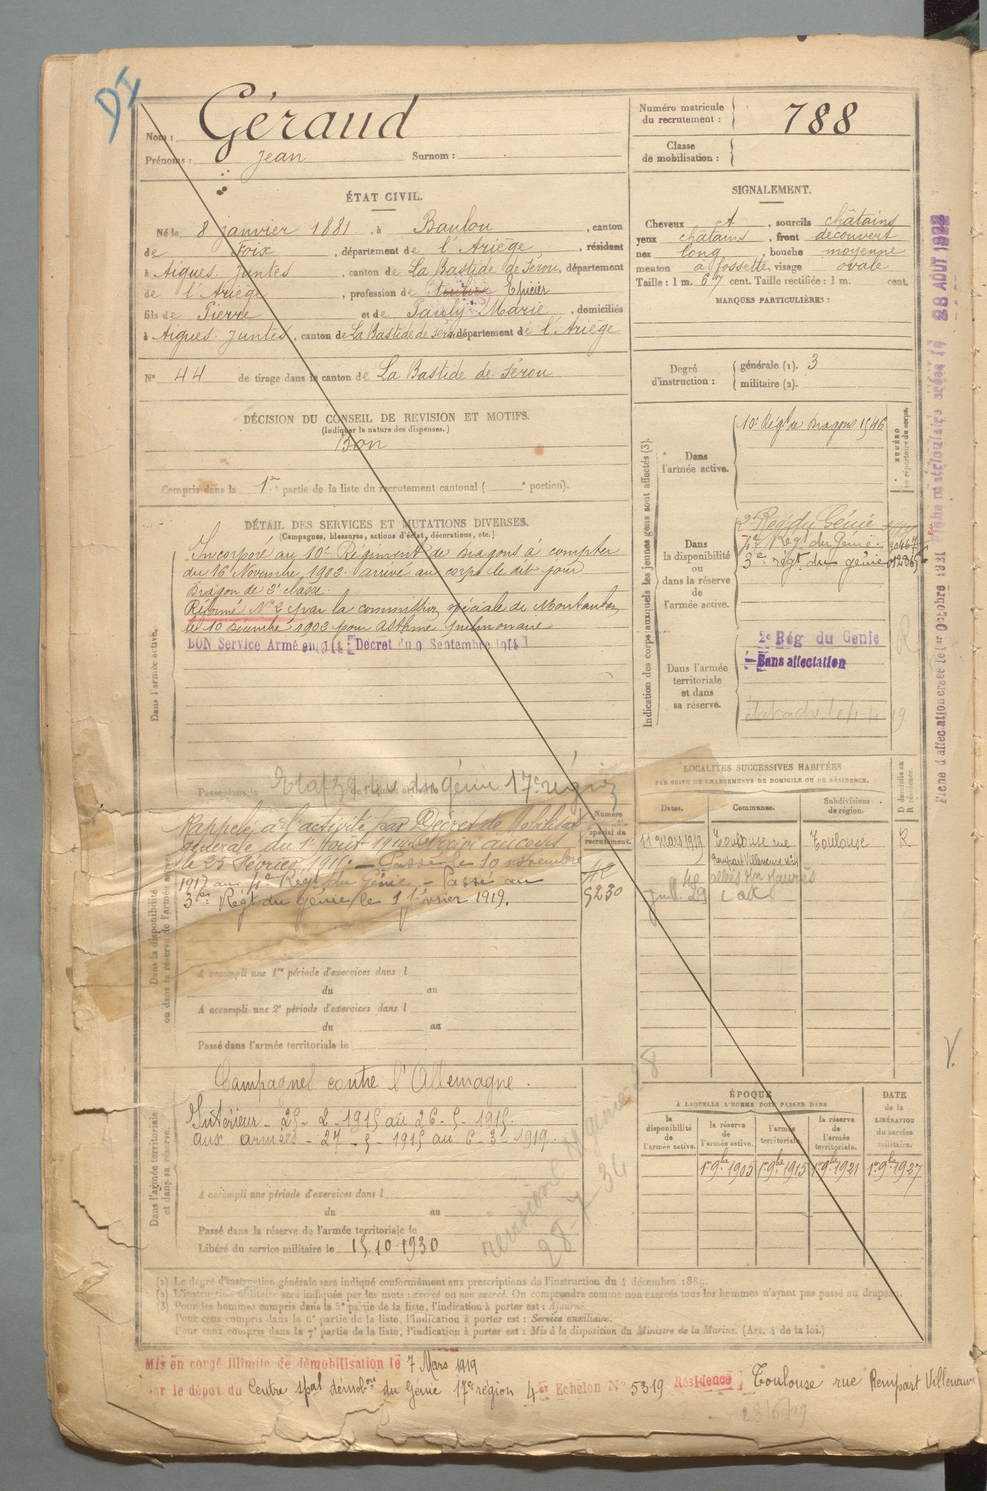 DI
Nom : Géraud
Prénoms : Jean Surnom :
Numéro matricule du recrutement : 788
Classe de mobilisation :
ÉTAT CIVIL.
Né le 8 janvier 1881, à Baulou, canton
de Foix, département de l'Ariège, résidant
à Aigues-Juntes, canton de La Bastide de Sérou, département
de l'Ariège, profession de Epicier
fils de Pierre et de Pauly Marie, domiciliés
à Aigues-Juntes, canton de La Bastide de Sérou département de l'Ariège
N° 44 de tirage dans le canton de La Bastide de Sérou
SIGNALEMENT.
Cheveux ct, sourcils châtains
yeux châtains, front découvert
nez long, bouche moyenne
menton à fossette, visage ovale
Taille : 1 m. 67 cent. Taille rectifiée : 1 m. cent.
MARQUES PARTICULIÈRES :
Degré d'instruction : générale (1). 3
militaire (2).
DÉCISION DU CONSEIL DE REVISION ET MOTIFS.
(Indiquer la nature des dispenses.)
Bon
Compris dans la 1re partie de la liste du recrutement cantonal ( e portion).
DÉTAIL DES SERVICES ET MUTATIONS DIVERSES.
(Campagnes, blessures, actions d'éclat, décorations, etc.)
Dans l'armée active.
Incorporé au 10e Régiment de Dragons à compter
du 16 Novembre 1902. arrivé au corps le dit jour
Dragon de 2e classe.
Réformé N° 2 par la commission spéciale de Montauban
le 10 décembre 1902 pour asthme pulmonaire
BON Service Armé en 1914 Décret du 9 Septembre 1914
Indication des corps auxquels les jeunes gens sont affectés (3).
Dans l'armée active.
10e Régt de Dragons 1546
NUMÉRO au répertoire du corps.
Dans la disponibilité ou dans la réserve de l'armée active.
2e Régt du Génie
3e régt du génie
Dans l'armée territoriale et dans sa réserve.
2e Rég du Génie
Sans affectation
Passé dans la
du génie 17e région
Dans la disponibilité ou dans la réserve de l'armée active.
Rappelé à l'activité par Décret de Mobilisation
générale du 1er Août 1914
le 25 Février 1915. — Passé le 10 novembre
1917 au 4e Régt du Génie. — Passé au
3e Régt du Génie le 1 février 1919.
Numéro spécial du recrutement.
5230
A accompli une 1re période d'exercices dans l
du au
A accompli une 2e période d'exercices dans l
du au
Passé dans l'armée territoriale le
LOCALITÉS SUCCESSIVES HABITÉES
PAR SUITE DE CHANGEMENTS DE DOMICILE OU DE RÉSIDENCE.
Dates. Communes. Subdivisions de région. D domicile ou R résidence.
11 mars 1912 Toulouse rue Rempart Villeneuve Toulouse R
40 allées Jn Jaurès
29
Dans l'armée territoriale et dans sa réserve.
Campagne contre l'Allemagne.
Intérieur - 25-2-1915 au 26-5-1915.
aux armées - 27-5-1915 au 6-3-1919.
A accompli une période d'exercices dans l
du au
Passé dans la réserve de l'armée territoriale le
Libéré du service militaire le 15.10.1930
ÉPOQUE
À LAQUELLE L'HOMME DOIT PASSER DANS
la disponibilité de l'armée active. la réserve de l'armée active. l'armée territoriale. la réserve de l'armée territoriale.
DATE de la LIBÉRATION du service militaire.
1er 9bre 1905 1er 9bre 1915 1er 9bre 1921 1er 9bre 1927
(1) Le degré d'instruction générale sera indiqué conformément aux prescriptions de l'instruction du 4 décembre 1889.
(2) L'instruction militaire sera indiquée par les mots : exercé ou non exercé. On comprendra comme non exercés tous les hommes n'ayant pas passé au drapeau.
(3) Pour les hommes compris dans la 5e partie de la liste, l'indication à porter est : Ajourné.
Pour ceux compris dans la 6e partie de la liste, l'indication à porter est : Service auxiliaire.
Pour ceux compris dans la 7e partie de la liste, l'indication à porter est : Mis à la disposition du Ministre de la Marine. (Art. 4 de la loi.)
Mis en congé illimité de démobilisation le 7 Mars 1919
par le dépot du Centre spal démobon du Génie 17e région 4e Echelon N° 5319 Résidence Toulouse rue Rempart Villeneuve
Fiche d'affectation créée le 1er Octobre 1921
Fiche matriculaire créée le 28 AOUT 1922